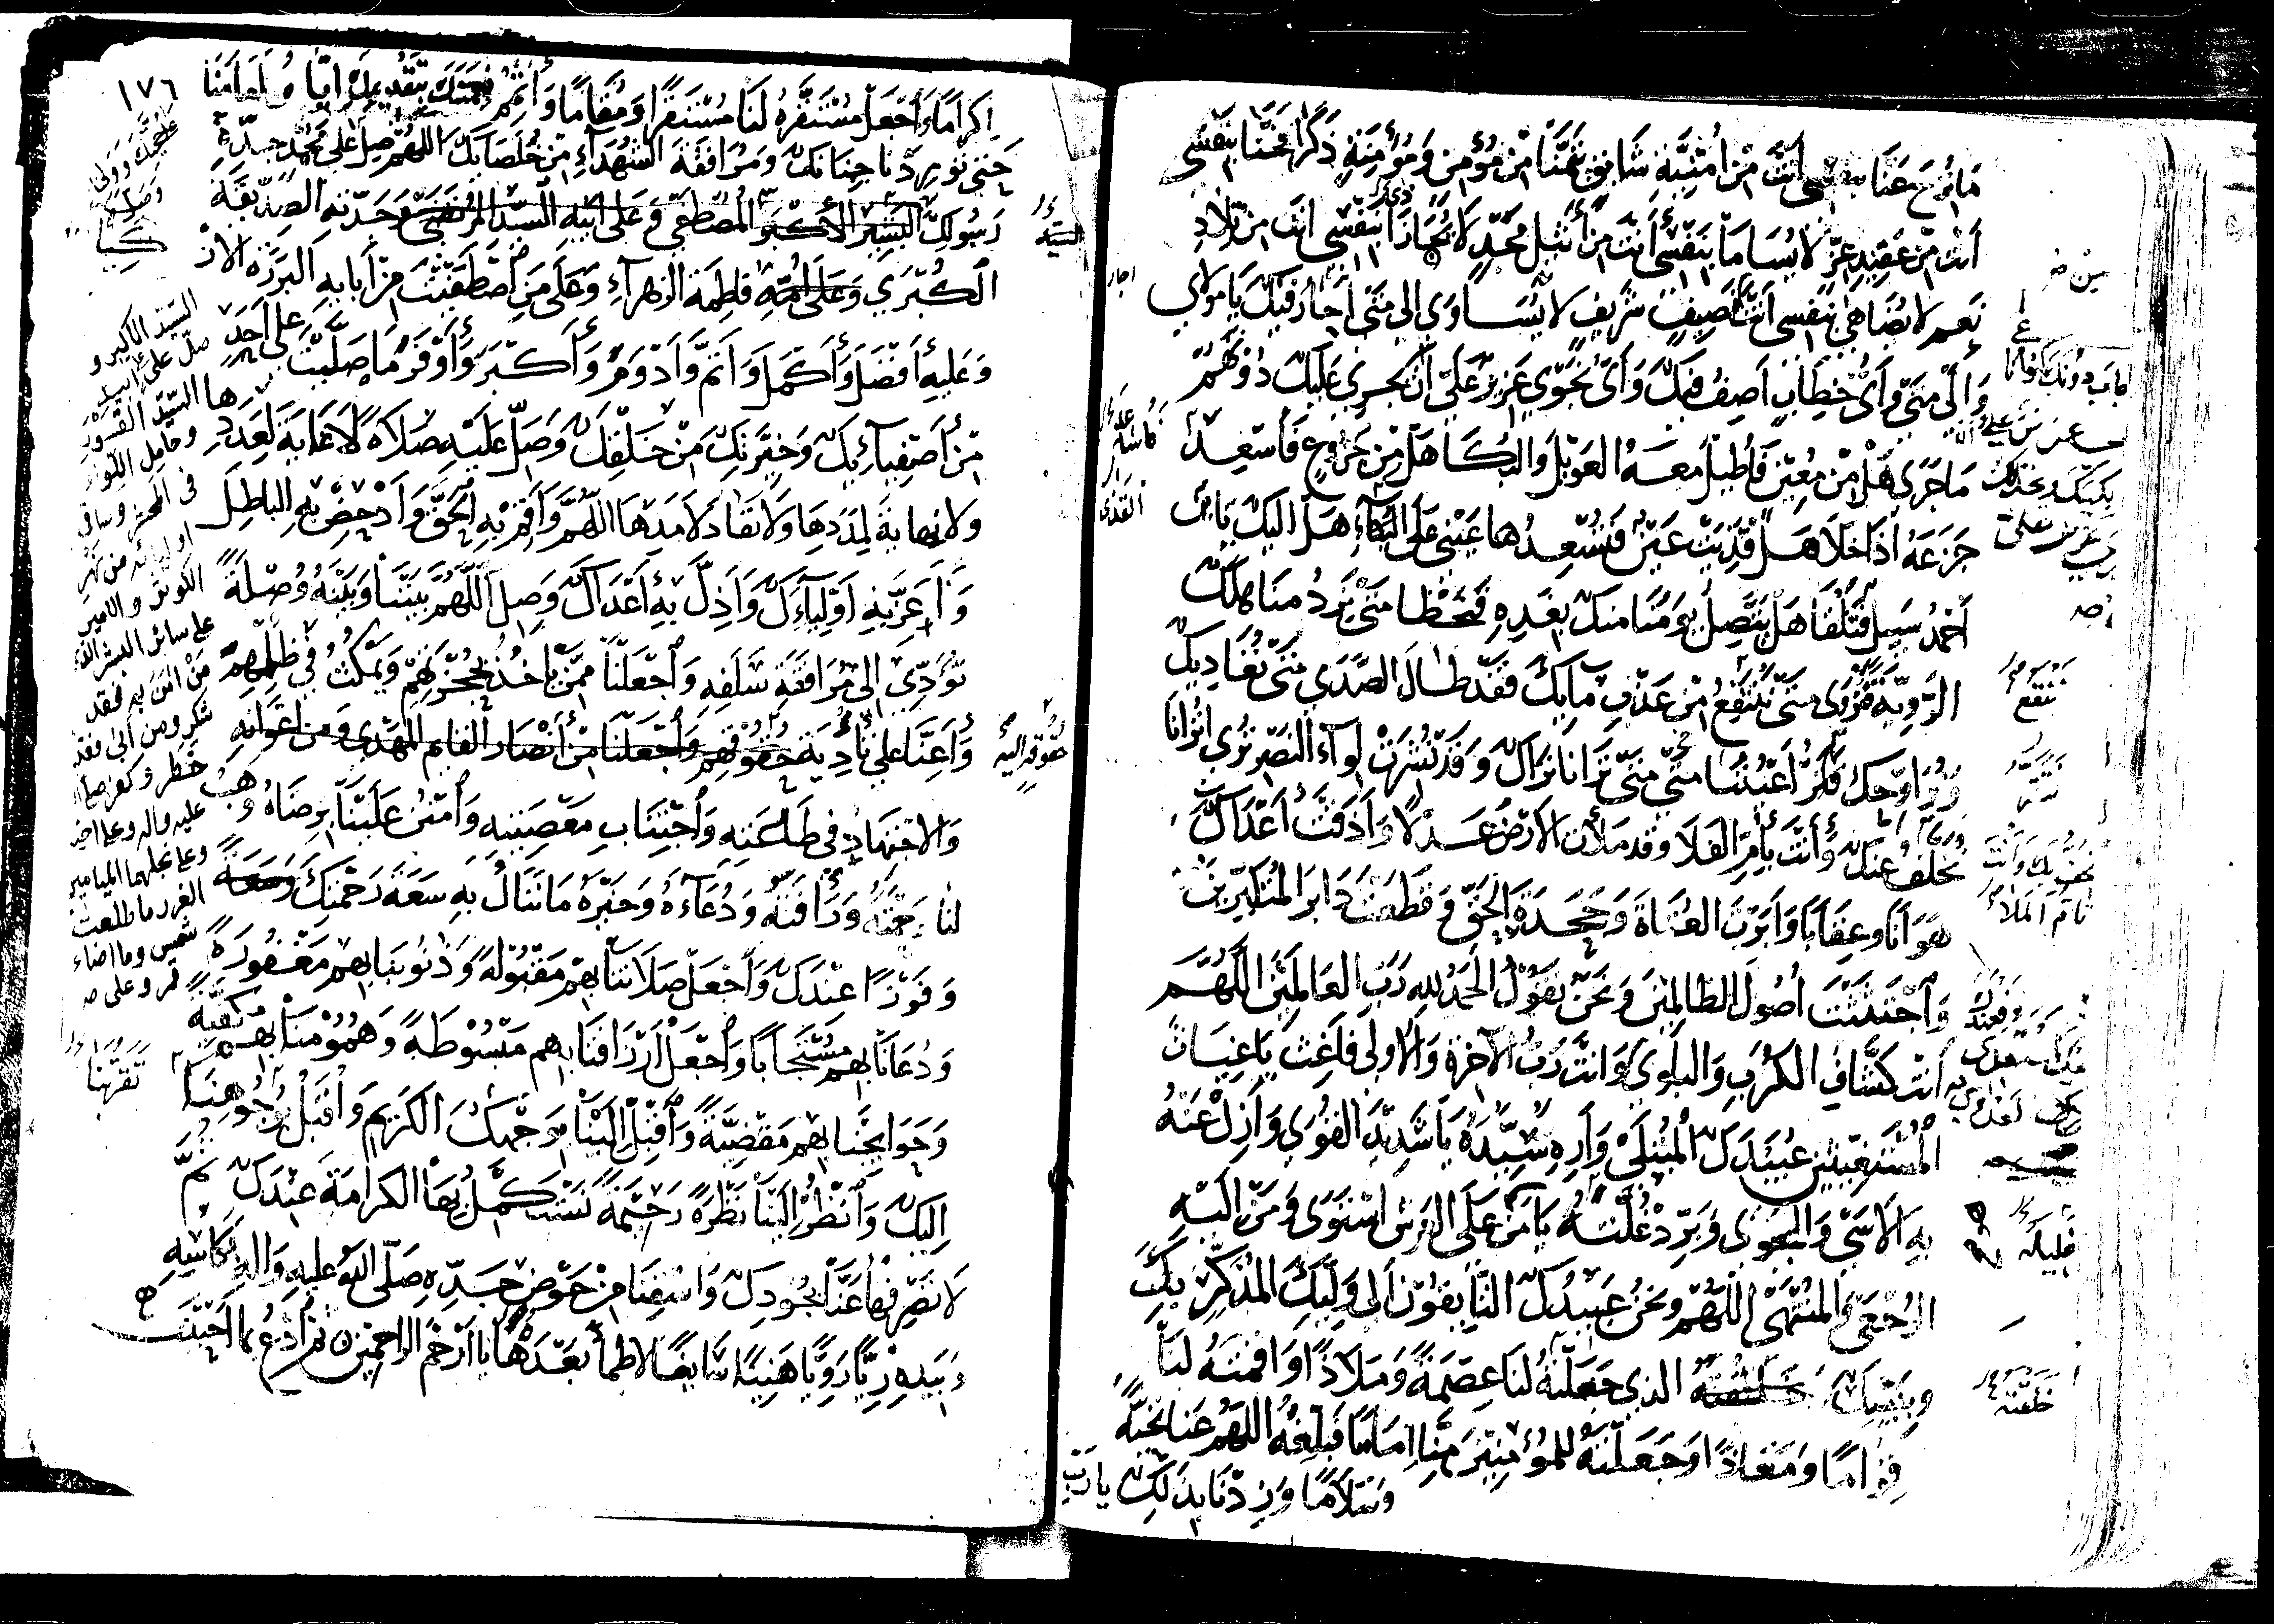 مَا نَزَحَ عَنَّا بِنَفْسِي أَنْتَ مِنْ أُمْنِيَّةِ شَائِقٍ تَمَنَّا مِنْ مُؤْمِنٍ وَمُؤْمِنَةٍ ذَكَرَا فَحَنَّا بِنَفْسِي
أَنْتَ مِنْ عَقِيدِ عِزٍّ لَا يُسَامَا بِنَفْسِي أَنْتَ مِنْ أَثِيلِ مَجْدٍ لَا يُجَازَا بِنَفْسِي أَنْتَ مِنْ تِلَادِ
نِعَمٍ لَا تُضَاهَى بِنَفْسِي أَنْتَ مِنْ نَصِيفِ شَرَفٍ لَا يُسَاوَى إِلَى مَتَى أَحَارُ فِيكَ يَا مَوْلَايَ
وَإِلَى مَتَى وَأَيَّ خِطَابٍ أَصِفُ فِيكَ وَأَيَّ نَجْوَى عَزِيزٌ عَلَيَّ أَنْ يَجْرِيَ عَلَيْكَ دُونَهُمْ
مَا جَرَى هَلْ مِنْ مُعِينٍ فَأُطِيلَ مَعَهُ الْعَوِيلَ وَالْبُكَا هَلْ مِنْ جَزُوعٍ فَأُسَاعِدَ
جَزَعَهُ إِذَا خَلَا هَلْ قَذِيَتْ عَيْنٌ فَتُسْعِدُهَا عَيْنِي عَلَى الْبُكَاءِ هَلْ إِلَيْكَ يَا بْنَ
أَحْمَدَ سَبِيلٌ فَتُلْقَا هَلْ يَتَّصِلُ يَوْمُنَا مِنْكَ بِغَدِهِ فَنَحْظَا مَتَى نَرِدُ مَنَاهِلَكَ
الرَّوِيَّةَ فَنَرْوَى مَتَى نَنْتَفِعُ مِنْ عَذْبِ مَائِكَ فَقَدْ طَالَ الصَّدَى مَتَى نُغَادِيكَ
وَنُرَاوِحُكَ فَنُقِرُّ أَعْيُنَنَا مَتَى تَرَانَا نَرَاكَ وَقَدْ نَشَرْتَ لِوَاءَ النَّصْرِ تُرَى أَتُرَانَا
نَحُفُّ بِكَ وَأَنْتَ تَأُمُّ الْمَلَا وَقَدْ مَلَأْتَ الْأَرْضَ عَدْلًا وَأَذَقْتَ أَعْدَاكَ
هَوَانًا وَعِقَابًا وَأَبَرْتَ الْعُتَاةَ وَجَحَدَةَ الْحَقِّ وَقَطَعْتَ دَابِرَ الْمُتَكَبِّرِينَ
وَاجْتَثَثْتَ أُصُولَ الظَّالِمِينَ وَنَحْنُ نَقُولُ الْحَمْدُ لِلَّهِ رَبِّ الْعَالَمِينَ اللَّهُمَّ
أَنْتَ كَشَّافُ الْكُرَبِ وَالْبَلْوَى وَأَنْتَ رَبُّ الْآخِرَةِ وَالْأُولَى فَأَغِثْ يَا غِيَاثَ
الْمُسْتَغِيثِينَ عُبَيْدَكَ الْمُبْتَلَى وَأَرِهِ سَيِّدَهُ يَا شَدِيدَ الْقُوَى وَأَزِلْ عَنْهُ
بِهِ الْأَسَى وَالْجَوَى وَبَرِّدْ غُلَّتَهُ يَا مَنْ عَلَى الْعَرْشِ اسْتَوَى وَمَنْ إِلَيْهِ
الرُّجْعَى وَالْمُنْتَهَى اللَّهُمَّ وَنَحْنُ عَبِيدُكَ التَّائِقُونَ إِلَى وَلِيِّكَ الْمُذَكِّرِ بِكَ
وَبِنَبِيِّكَ خَلَقْتَهُ الَّذِي جَعَلْتَهُ لَنَا عِصْمَةً وَمَلَاذًا وَأَقَمْتَهُ لَنَا
قِوَامًا وَمَعَاذًا وَجَعَلْتَهُ لِلْمُؤْمِنِينَ مِنَّا إِمَامًا فَبَلِّغْهُ اللَّهُمَّ عَنَّا تَحِيَّةً
وَسَلَامًا وَزِدْنَا بِذَلِكَ يَا رَبِّ
ننتفع
غليله
خلقته
القذى
١٧٦
إِكْرَامًا وَاجْعَلْ مُسْتَقَرَّهُ لَنَا مُسْتَقَرًّا وَمُقَامًا وَأَتْمِمْ نِعْمَتَكَ بِتَقْدِيمِكَ إِيَّاهُ أَمَامَنَا
حَتَّى تُورِدَنَا جِنَانَكَ وَمُرَافَقَةَ الشُّهَدَاءِ مِنْ خُلَصَائِكَ اللَّهُمَّ صَلِّ عَلَى مُحَمَّدٍ جَدِّهِ
رَسُولِكَ السَّيِّدِ الْأَكْبَرِ الْمُصْطَفَى وَعَلَى أَبِيهِ السَّيِّدِ الْمُرْتَضَى وَجَدَّتِهِ الصِّدِّيقَةِ
الْكُبْرَى وَعَلَى أُمِّهِ فَاطِمَةَ الزَّهْرَاءِ وَعَلَى مَنِ اصْطَفَيْتَ مِنْ آبَائِهِ الْبَرَرَةِ
وَعَلَيْهِ أَفْضَلَ وَأَكْمَلَ وَأَتَمَّ وَأَدْوَمَ وَأَكْبَرَ وَأَوْفَرَ مَا صَلَّيْتَ عَلَى أَحَدٍ
مِنْ أَصْفِيَائِكَ وَخِيَرَتِكَ مِنْ خَلْقِكَ وَصَلِّ عَلَيْهِ صَلَاةً لَا غَايَةَ لِعَدَدِهَا
وَلَا نِهَايَةَ لِمَدَدِهَا وَلَا نَفَادَ لِأَمَدِهَا اللَّهُمَّ وَأَقِمْ بِهِ الْحَقَّ وَأَدْحِضْ بِهِ الْبَاطِلَ
وَأَعِزَّ بِهِ أَوْلِيَاءَكَ وَأَذِلَّ بِهِ أَعْدَاكَ وَصِلِ اللَّهُمَّ بَيْنَنَا وَبَيْنَهُ وُصْلَةً
تُؤَدِّي إِلَى مُرَافَقَةِ سَلَفِهِ وَاجْعَلْنَا مِمَّنْ يَأْخُذُ بِحُجْزَتِهِمْ وَيَمْكُثُ فِي ظِلِّهِمْ
وَأَعِنَّا عَلَى تَأْدِيَةِ حُقُوقِهِمْ وَاجْعَلْنَا مِنْ أَنْصَارِ الْقَائِمِ الْمَهْدِيِّ وَمِنْ أَعْوَانِهِ
وَالِاجْتِهَادِ فِي طَاعَتِهِ وَاجْتِنَابِ مَعْصِيَتِهِ وَامْنُنْ عَلَيْنَا بِرِضَاهُ وَهَبْ
لَنَا رَحْمَتَهُ وَرَأْفَتَهُ وَدُعَاءَهُ وَخَيْرَهُ مَا نَنَالُ بِهِ سَعَةَ رَحْمَتِكَ
وَفَوْزًا عِنْدَكَ وَاجْعَلْ صَلَاتَنَا بِهِمْ مَقْبُولَةً وَذُنُوبَنَا بِهِمْ مَغْفُورَةً
وَدُعَانَا بِهِمْ مُسْتَجَابًا وَاجْعَلْ أَرْزَاقَنَا بِهِمْ مَبْسُوطَةً وَهُمُومَنَا بِهِمْ مَكْفِيَّةً
وَحَوَائِجَنَا بِهِمْ مَقْضِيَّةً وَأَقْبِلْ إِلَيْنَا بِوَجْهِكَ الْكَرِيمِ وَاقْبَلْ
إِلَيْكَ وَانْظُرْ إِلَيْنَا نَظْرَةً رَحِيمَةً نَسْتَكْمِلُ بِهَا الْكَرَامَةَ عِنْدَكَ ثُمَّ
لَا تَصْرِفْهَا عَنَّا بِجُودِكَ وَاسْقِنَا مِنْ حَوْضِ جَدِّهِ صَلَّى اللَّهُ عَلَيْهِ وَآلِهِ بِكَأْسِهِ
وَبِيَدِهِ رِيًّا رَوِيًّا هَنِيئًا سَائِغًا لَا ظَمَأَ بَعْدَهَا يَا أَرْحَمَ الرَّاحِمِينَ ثُمَّ ادْعُ بِمَا أَحْبَبْتَ
السيد الأكبر و
صل على ابيه
السيد القسور
وحامل اللواء
في المحشر وساقى
اوليائه من نهر
الكوثر والامير
على سائر البشر الذى
من امن به فقد
شكر ومن ابى فقد
خطر وكفر صلى
عليه واله وعلى اخيه
وعلى نجلهما الميامين
الغرر ما طلعت
شمس وما اضاء
قمر وعلى
السيد
تقربنا